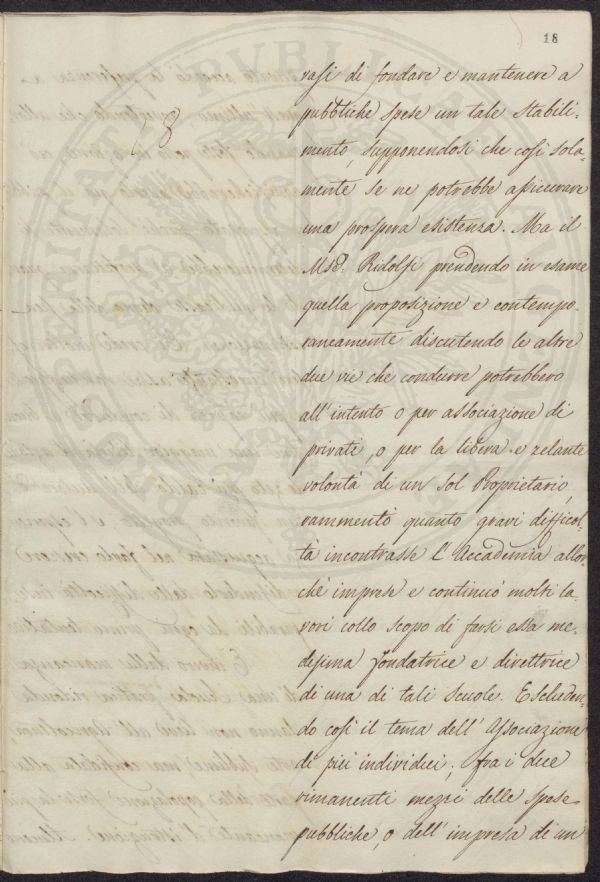 18
18
rassi di fondare e mantenere a
pubbliche spese un tale stabili-
mento, supponendosi che così sola-
mente se ne potrebbe assicurare
una prospera esistenza. Ma il
Mse. Ridolfi prendendo in esame
quella proposizione e contempo-
raneamente discutendo le altre
due vie che condurre potrebbero
all'intento o per associazione di
privati, o per la libera e zelante
volontà di un sol Proprietario,
rammentò quanto gravi difficol-
tà incontrasse l'Accademia allor-
chè imprese e continuò molti la-
vori collo scopo di farsi essa me-
desima fondatrice e direttrice
di una di tali scuole. Escluden-
do così il tema dell'Associazione
di più individui; fra i due
rimanenti mezzi delle spese
pubbliche, o dell'impresa di un